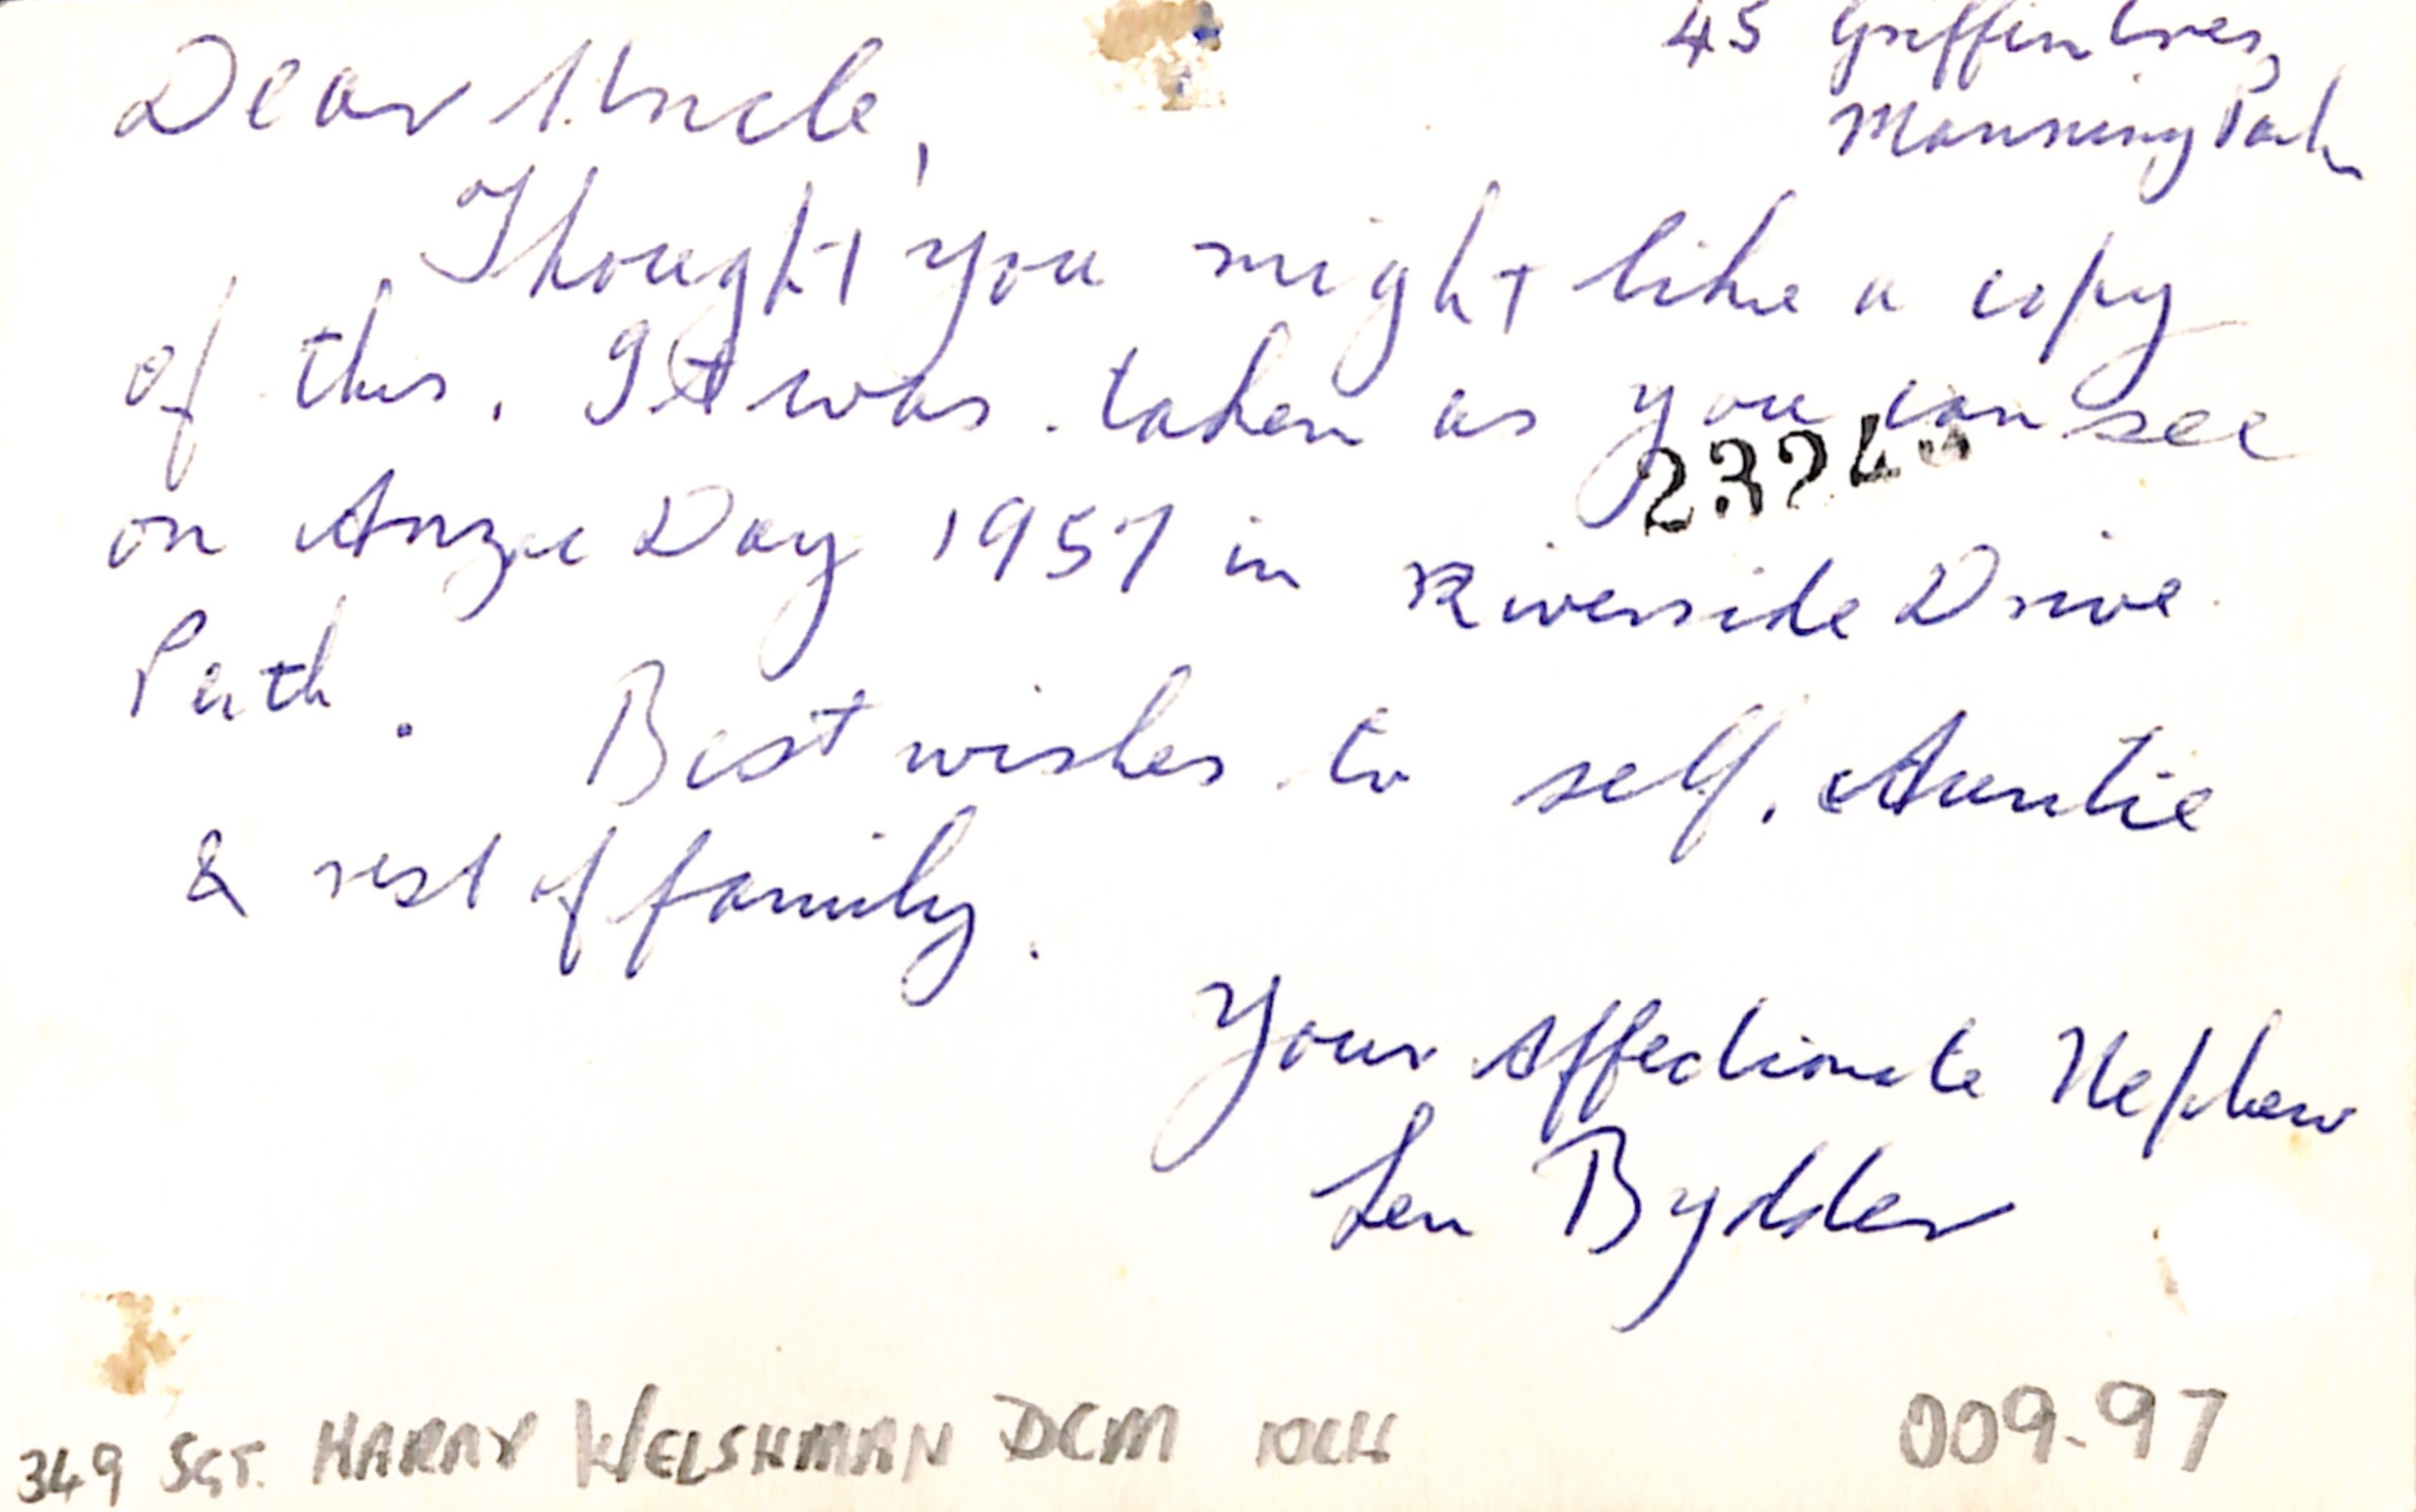 45 Griffin Cres,
Manning Park
Dear Uncle,
Thought you might like a copy
of this. It was taken as you can see
2324
on Anzac Day 1957 in Riverside Drive
Perth. Best wishes to self, Auntie
& rest of family.
Your Affectionate Nephew
Len Bydder
349 SGT. HARRY WELSHMAN DCM 10LH
009-97